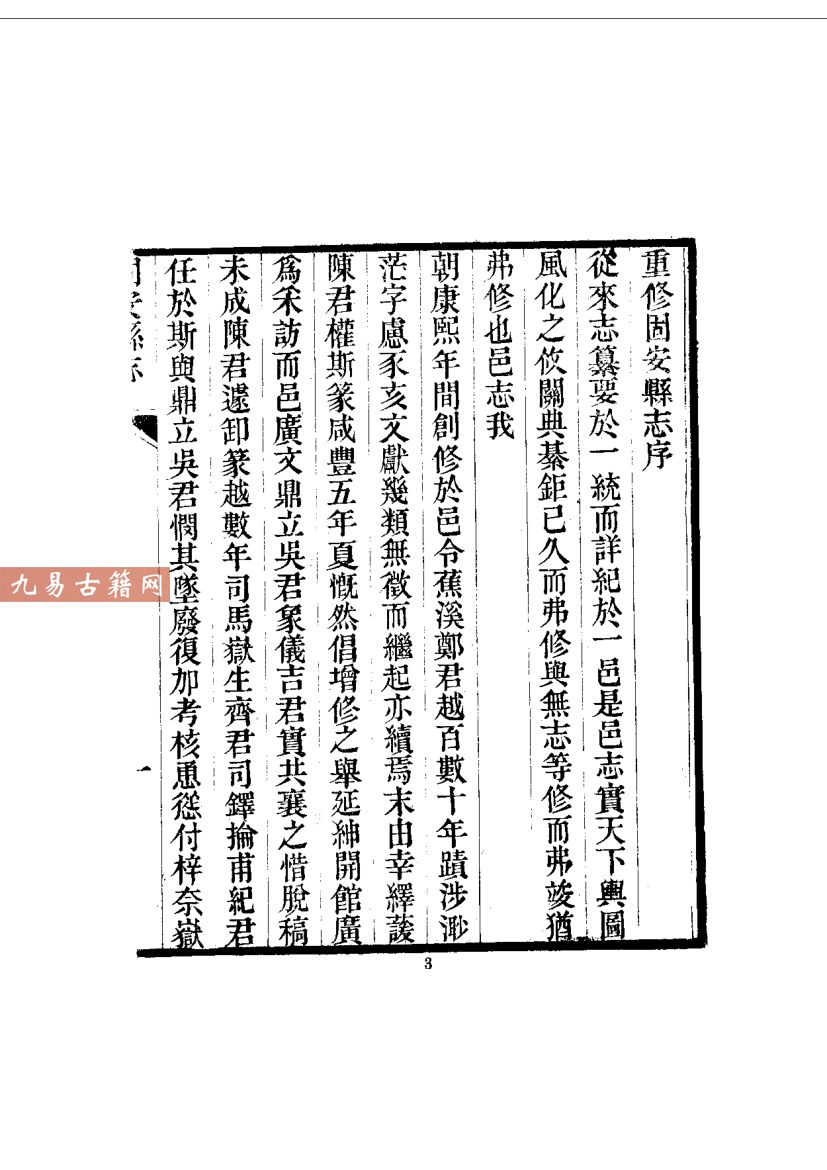 重修固安縣志序
從來志纂要於一統而詳紀於一邑是邑志實天下輿圖
風化之攸關典綦鉅已久而弗修與無志等修而弗竣猶
弗修也邑志我
朝康熙年間創修於邑令蕉溪鄭君越百數十年蹟涉渺
茫字慮豕亥文獻幾類無徵而繼起亦續焉末由幸繹䕶
陳君權斯篆咸豐五年夏慨然倡增修之舉延紳開館廣
爲采訪而邑廣文鼎立吳君象儀吉君實共襄之惜脫稿
未成陳君遽卸篆越數年司馬嶽生齊君司鐸掄甫紀君
任於斯與鼎立吳君憫其墜廢復加考核慂慫付梓奈嶽
固安縣志
一
九易古籍网
3